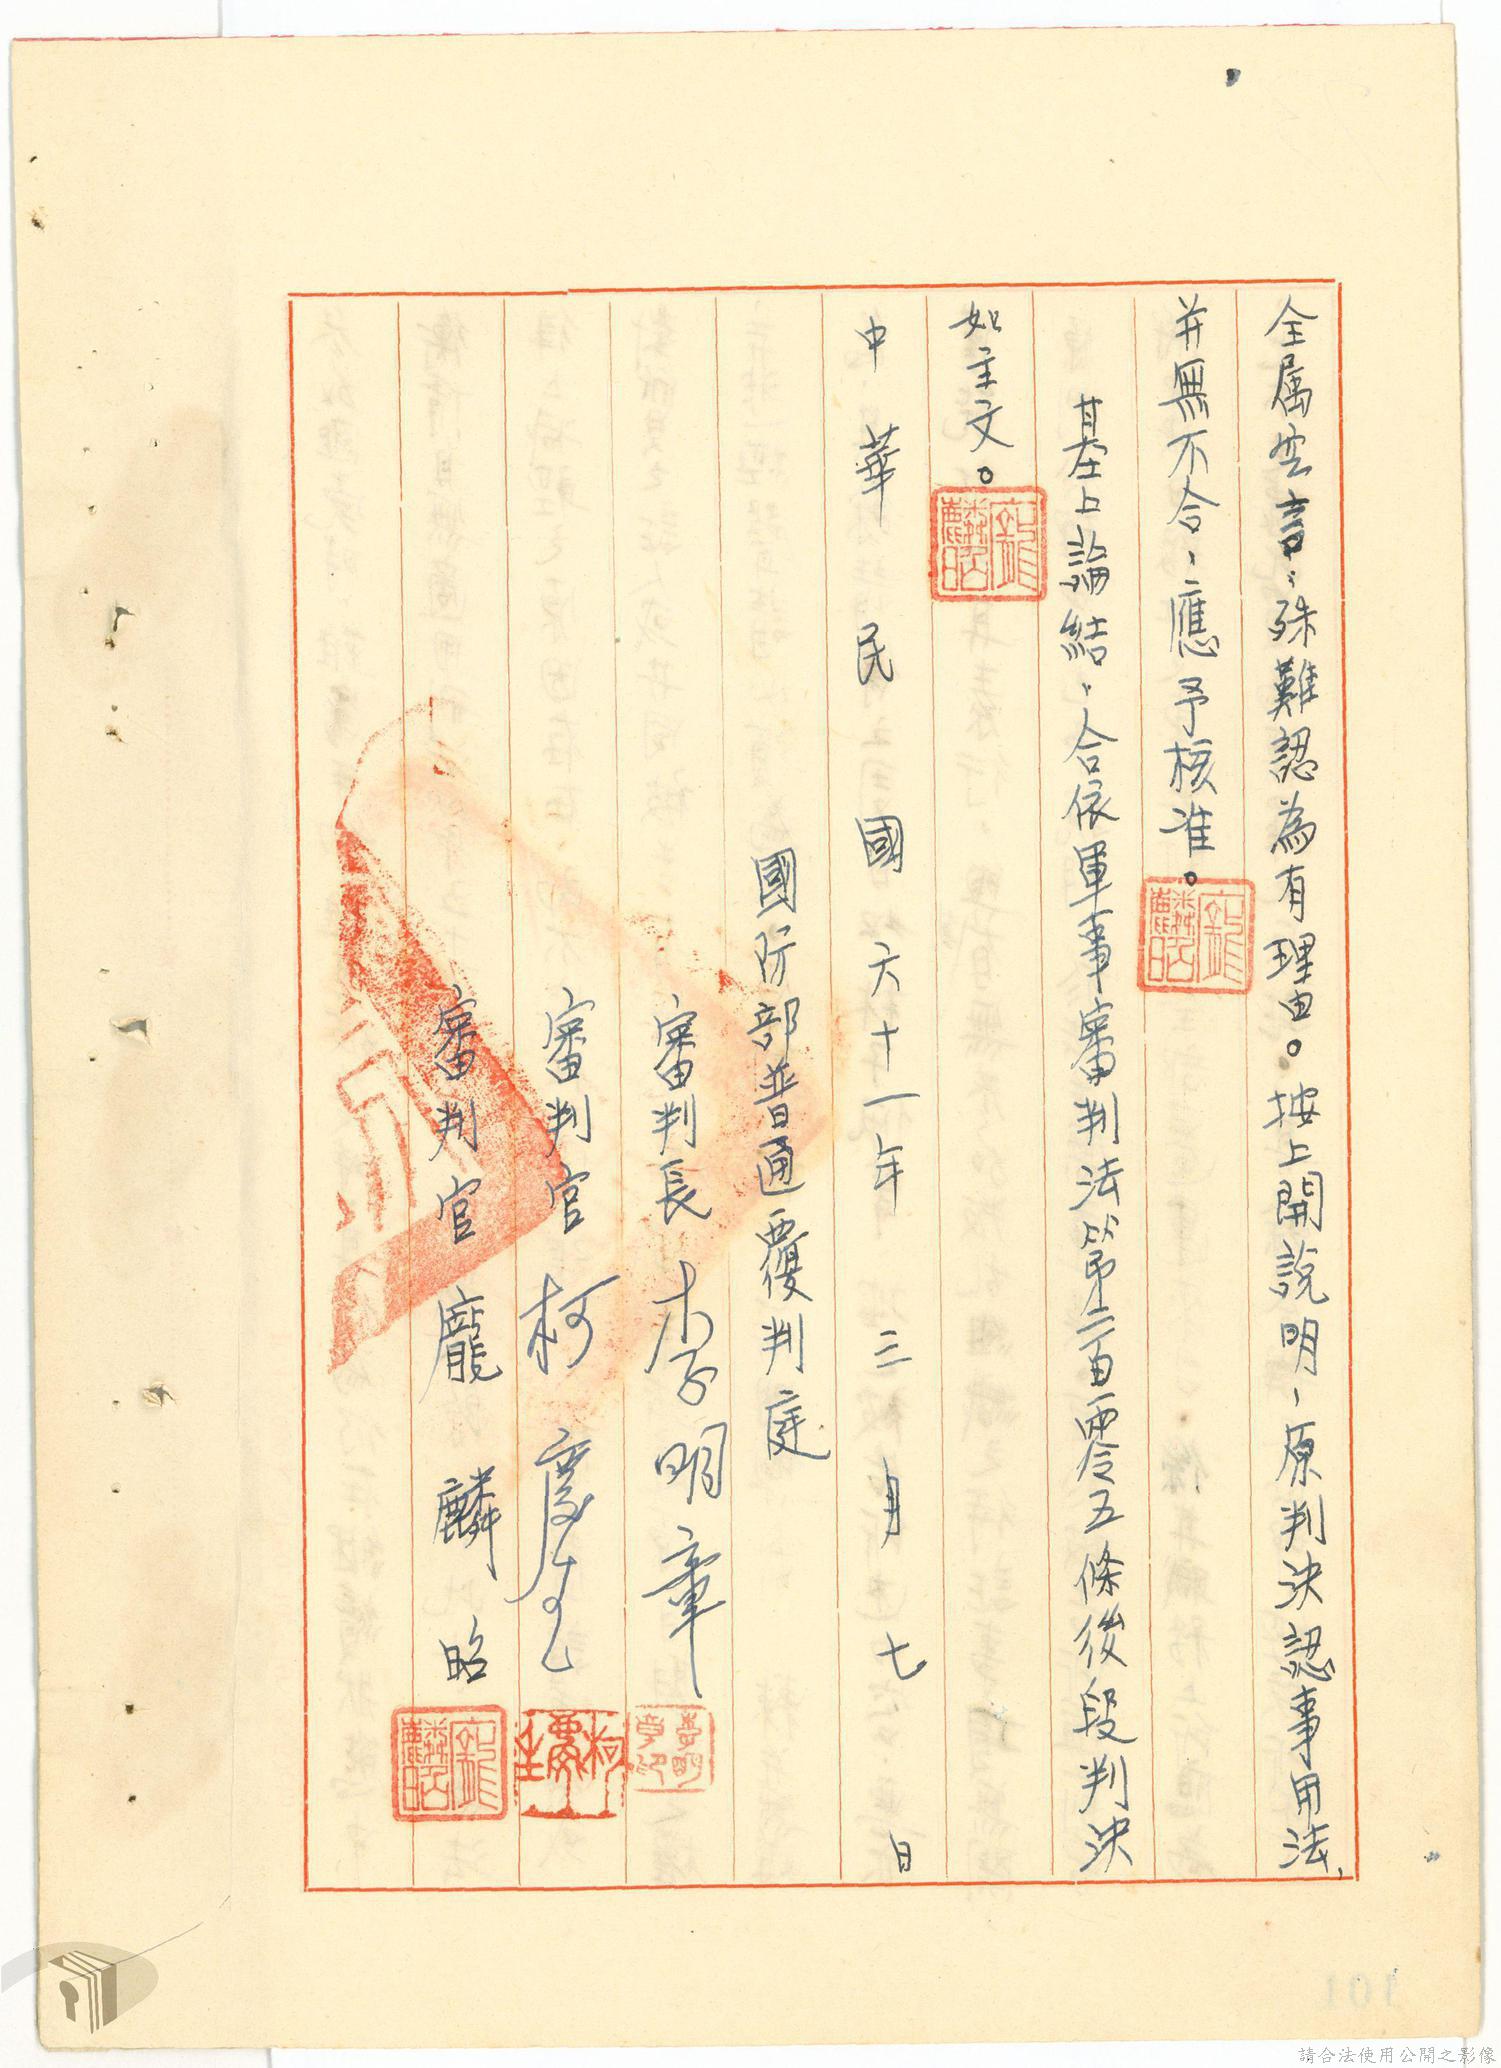 全属空言，殊難認為有理由。按上開說明，原判決認事用法，
并無不合，應予核准。
基上論結，合依軍事審判法第二百零五條後段判決
如主文。
中華民國六十一年三月七日
國防部普通覆判庭
審判長 李明章
審判官 柯慶生
審判官 龐麟昭
101
請合法使用公開之影像